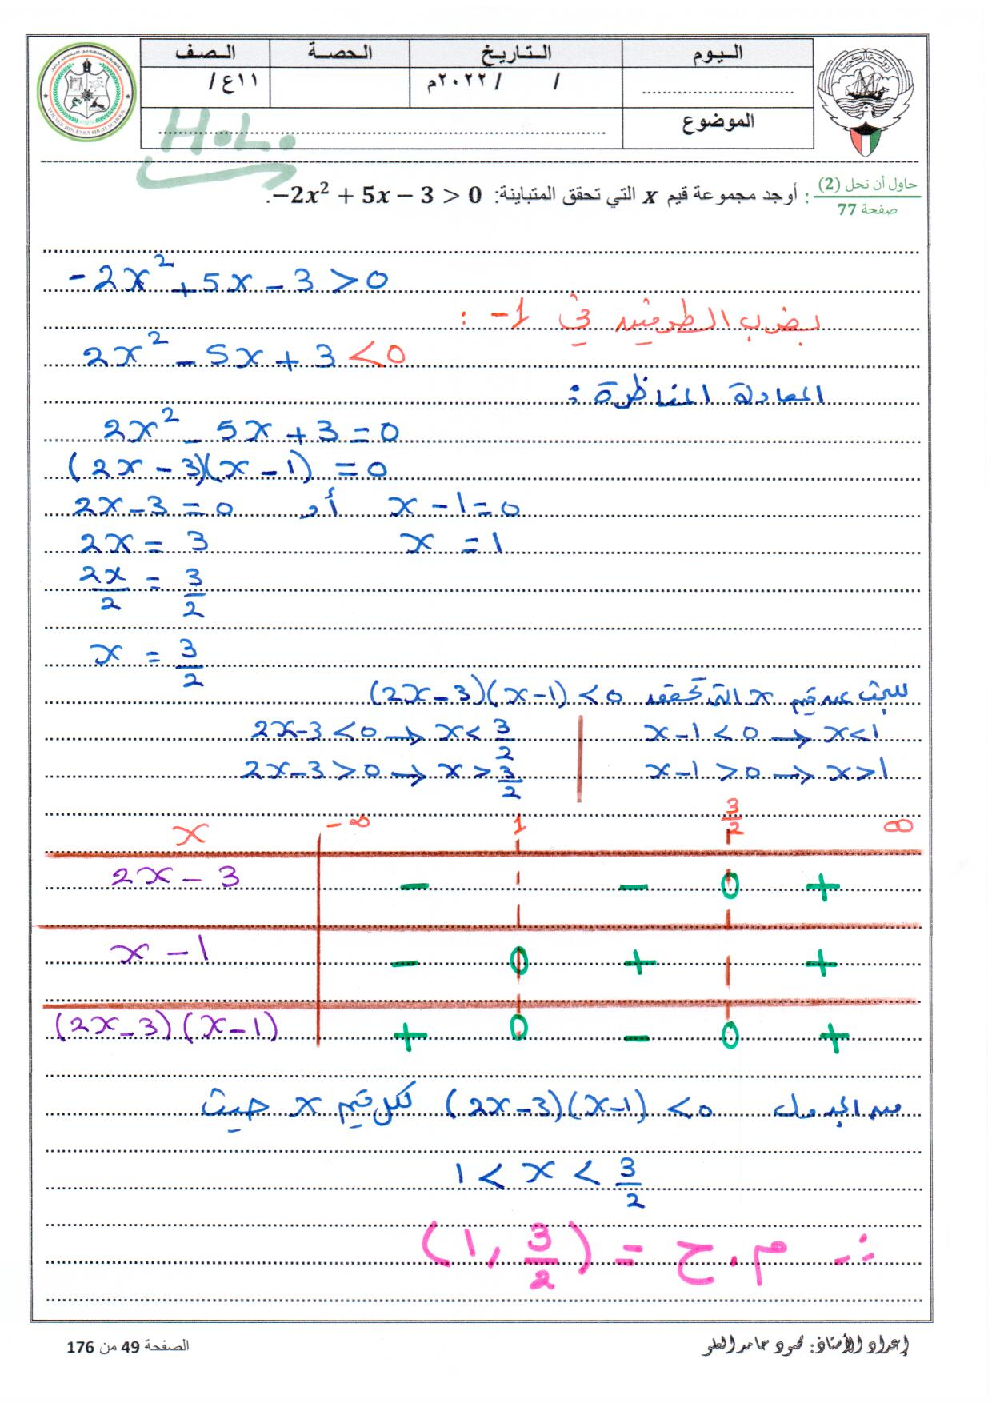 اليوم التاريخ الحصة الصف
/ / ٢٠٢٢م ١١ع /
الموضوع
H.L.
حاول أن تحل (2)
صفحة 77
: أوجد مجموعة قيم x التي تحقق المتباينة: −2x² + 5x − 3 > 0.
-2x² + 5x - 3 > 0
بضرب الطرفين في 1- :
2x² - 5x + 3 < 0
المعادلة المناظرة :
2x² - 5x + 3 = 0
(2x - 3)(x - 1) = 0
2x - 3 = 0 أو x - 1 = 0
2x = 3 x = 1
2x/2 = 3/2
x = 3/2
للبحث عن قيم x التي تحقق (2x-3)(x-1) < 0
2x-3 < 0 → x < 3/2 x-1 < 0 → x < 1
2x-3 > 0 → x > 3/2 x-1 > 0 → x > 1
x -∞ 1 3/2 ∞
2x - 3 - - 0 +
x - 1 - 0 + +
(2x-3)(x-1) + 0 - 0 +
من الجدول (2x-3)(x-1) < 0 لكل قيم x حيث
1 < x < 3/2
∴ م.ح = (1, 3/2)
إعداد الأستاذ: محمود حامد
الصفحة 49 من 176